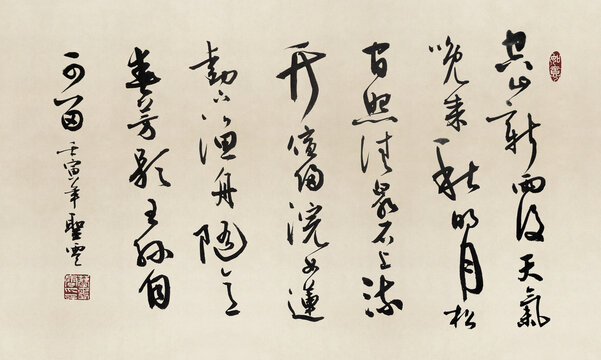 空山新雨後天氣
晚來秋明月松
間照清泉石上流
竹喧歸浣女蓮
動下漁舟隨意
春芳歇王孫自
可留
壬寅年聖雲